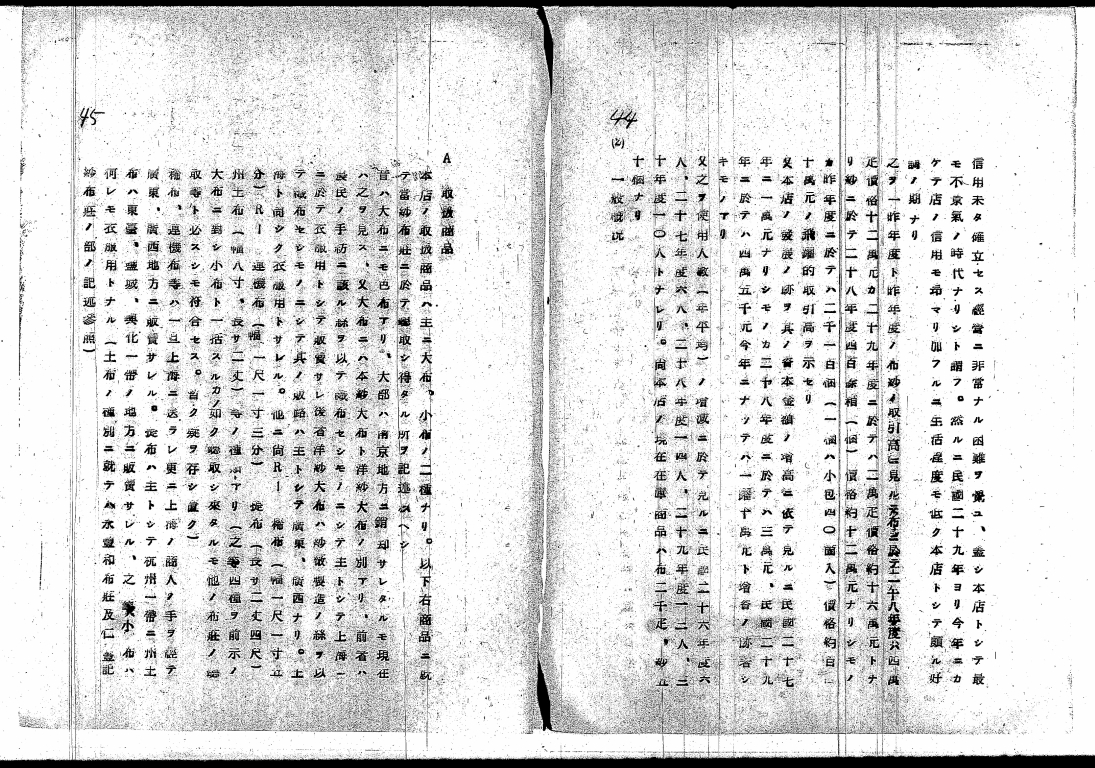 44
信用未タ確立セス經營ニ非常ナル困難ヲ覺ユ、蓋シ本店トシテ最
モ不景氣ノ時代ナリシト謂フ。然ルニ民國二十九年ヨリ今年ニカ
ケテ店ノ信用モ昂マリ加フルニ生活程度モ低ク本店トシテ頗ル好
調ノ期ナリ
之ヲ一昨年度ト昨年度ノ布紗ノ取引高ニ見ル布ニ於テ二十八年度六四萬
疋價格十二萬元カ二十九年度ニ於テハ二萬疋價格約十六萬元トナ
リ紗ニ於テ二十八年度四百余梱(個)價格約十二萬元ナリシモノ
カ昨年度ニ於テハ二千一百個(一個ハ小包四〇個入)價格約百
十萬元ノ飛躍的取引高ヲ示セリ
又本店ノ發展ノ跡ヲ其ノ資本金額ノ增高ニ依テ見ルニ民國二十七
年ニ一萬元ナリシモノカ二十八年度ニ於テハ三萬元、民國二十九
年ニ於テハ四萬五千元今年ニナッテハ一躍十萬元ト增資ノ跡著シ
キモノアリ
又之ヲ使用人數(年平均)ノ增減ニ於テ見ルニ民國二十六年度六
人、二十七年度六人、二十八年度一四人、二十九年度一二人、三
十年度一〇人トナレリ。尚本店ノ現在在庫商品ハ布二千疋、紗五
十個ナリ
(2) 一般概況
45
A 取扱商品
本店ノ取扱商品ハ主ニ大布、小布ノ二種ナリ。以下右商品ニ就
テ當紗布莊ニ於テ聽取シ得タル所ヲ記述スヘシ
昔ハ大布ニモ色布アリ、大部ハ南京地方ニ銷却サレタルモ現在
ハ之ヲ見ス、又大布ニハ本紗大布ト洋紗大布ノ別アリ、前者ハ
農民ノ手紡ニ該ル絲ヲ以テ織布セシモノニシテ主トシテ上海
ニ於テ衣服用トシテ販賣サレ後者洋紗大布ハ紗廠製造ノ絲ヲ以
テ織布セシモノニシテ其ノ販路ハ主トシテ廣東、廣西ナリ。上
海ト同シク衣服用トサレル。他ニ尚R一 稀布(幅一尺一寸五
分)R一 連機布(幅一尺一寸三分) 疋布(長サ二丈四尺)
州土布(幅八寸、長サ二丈)等ノ種類アリ(之等四種ヲ前示ノ
大布ニ對シ小布ト一括スルカノ如ク聽取シ來タルモ他ノ布莊ノ聽
取等ト必スシモ符合セス。暫ク疑ヲ存シ置ク)
稀布、連機布等ハ一旦上海ニ送ラレ更ニ上海ノ商人ノ手ヲ經テ
廣東、廣西地方ニ販賣サレル。疋布ハ主トシテ杭州一帶ニ州土
布ハ東臺、鹽城、興化一帶ノ地方ニ販賣サレル、之等小布ハ
何レモ衣服用トナル(土布ノ種別ニ就テハ永豐和布莊及仁 記
紗布莊ノ部ノ記述參照)